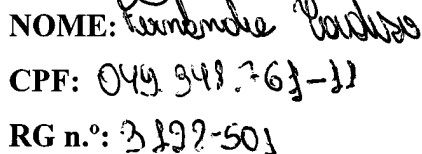 NOME: Cardoso
CPF: 049.948.761-11
RG n.º: 3192-501